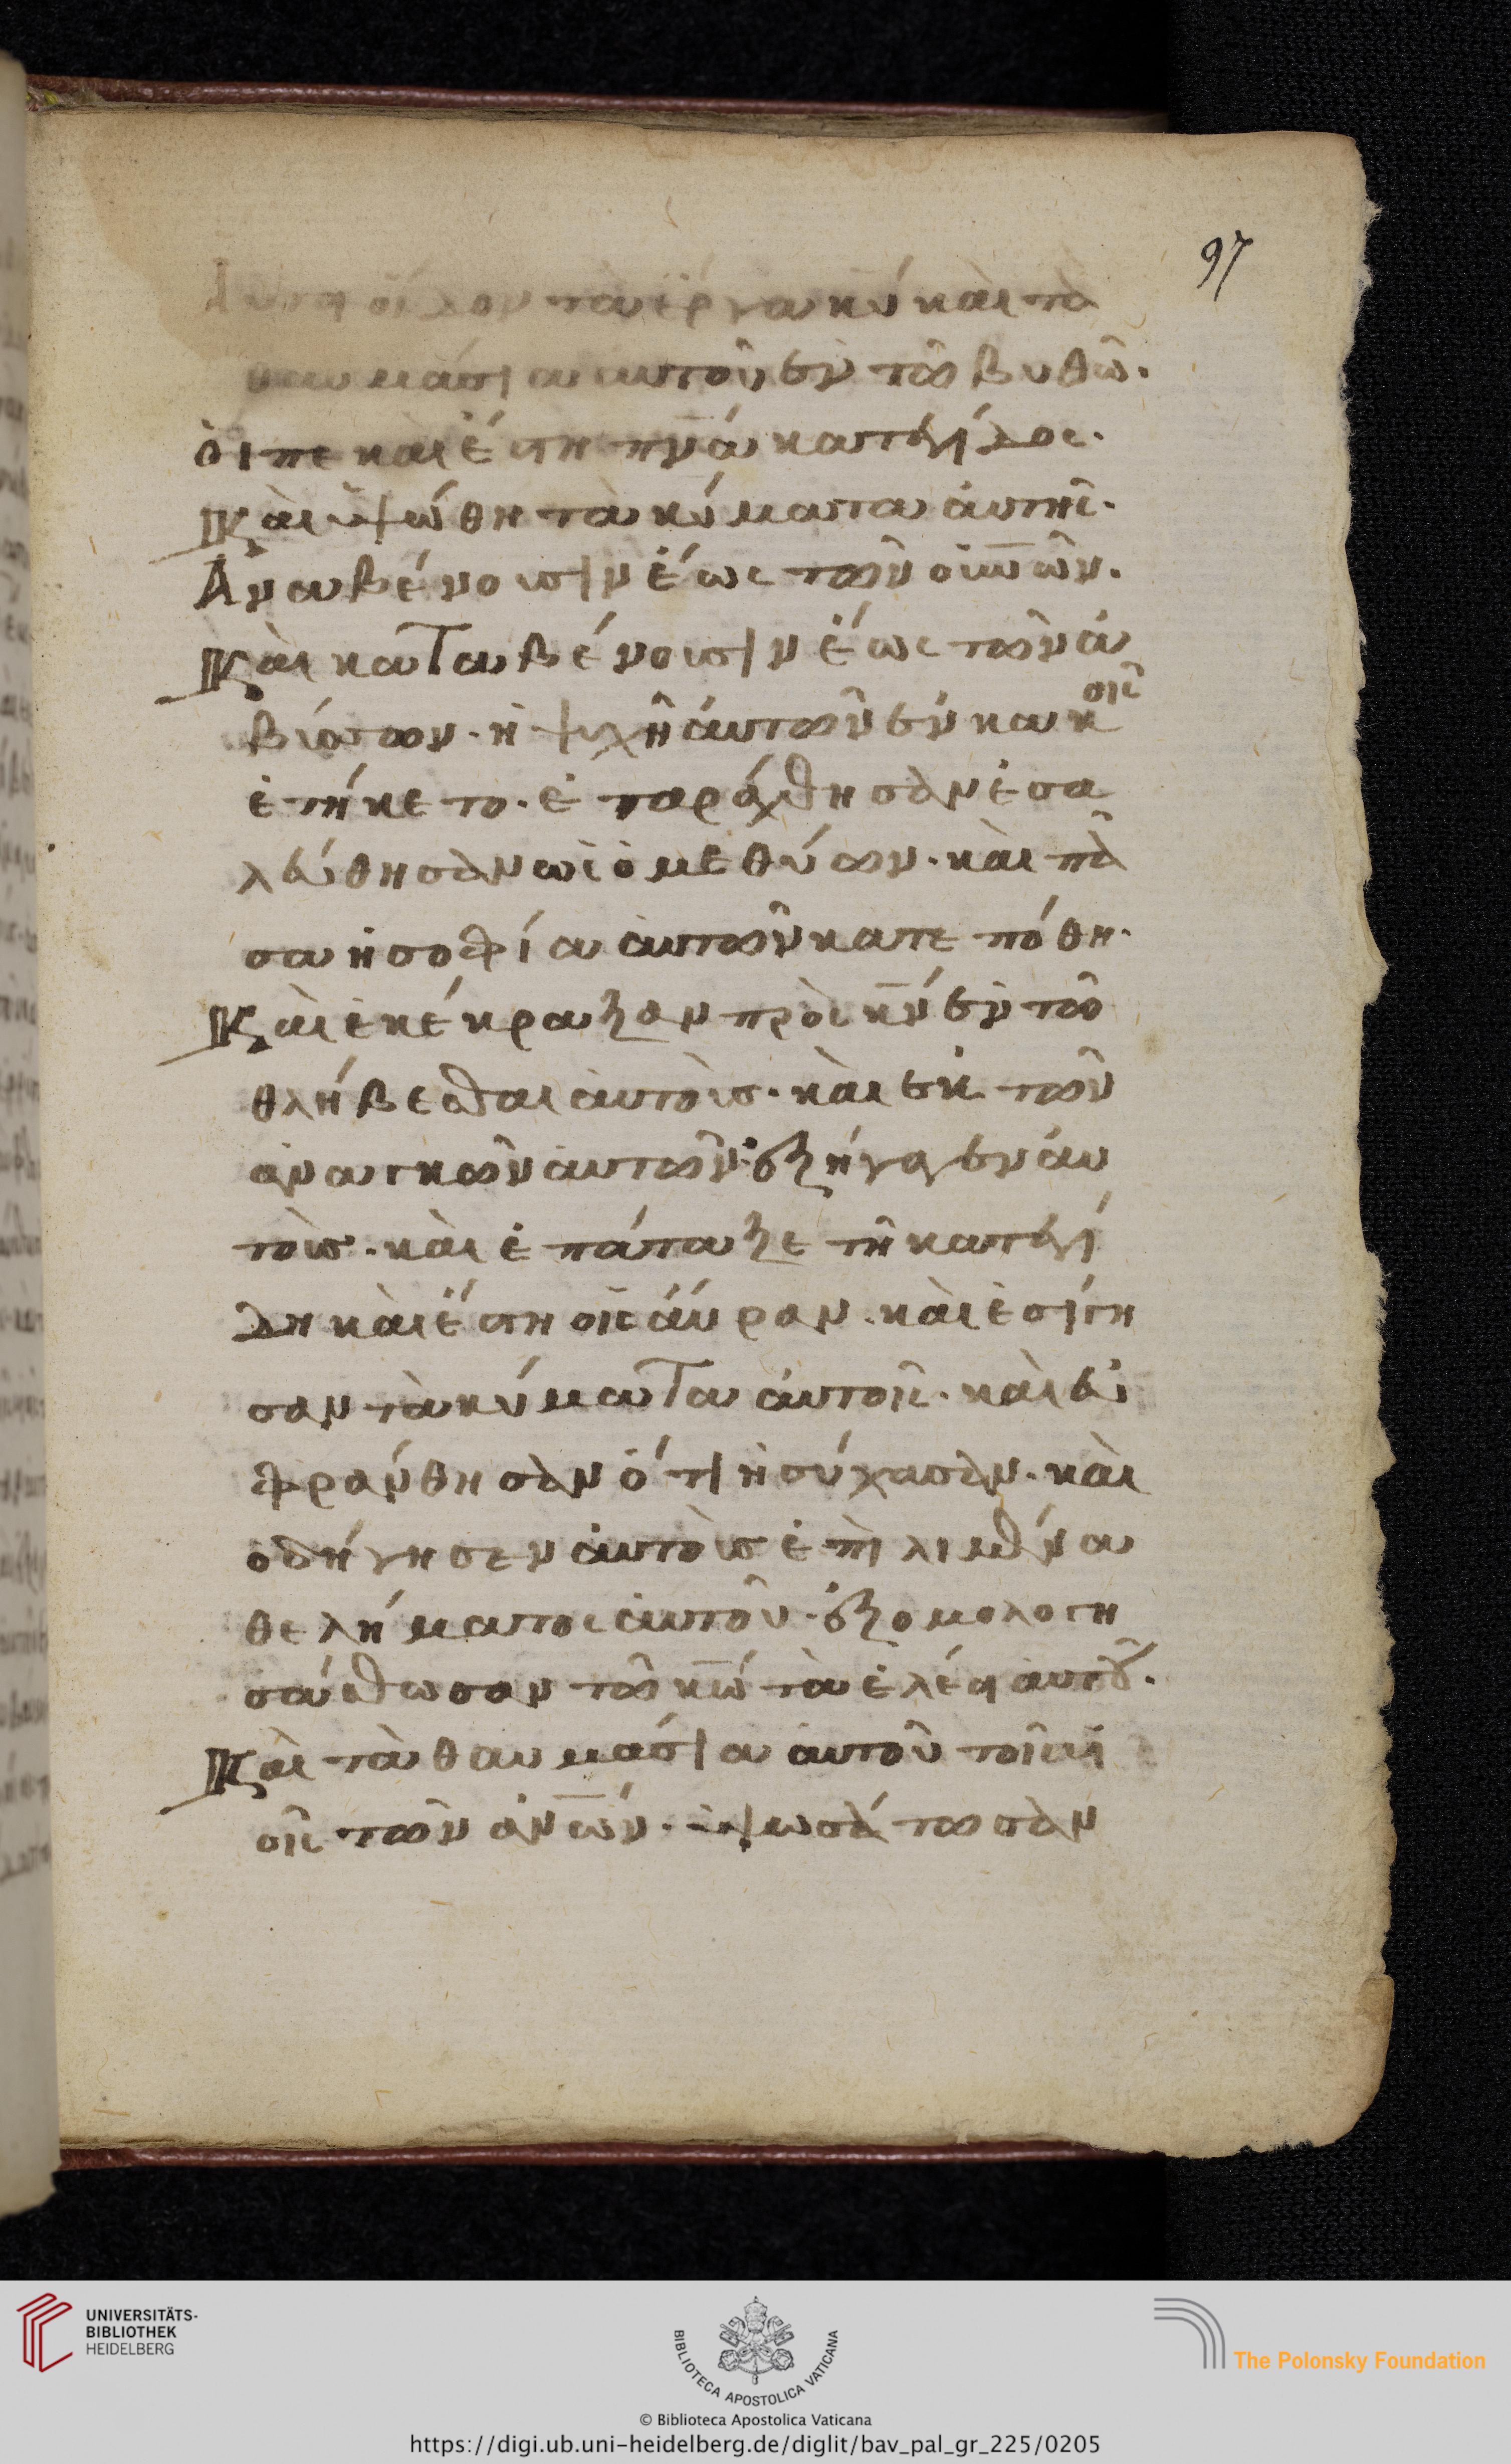 97
Αὐτοὶ οἴδον τὰ ἔργα κ̅υ̅ καὶ τὰ
θαυμάσια αυτοῦ ἐν τῶ βυθῶ.
ὃιπε καὶ ἔστη πν̅α̅ κατεγίδος.
Καὶ ὑψώθη τὰ κύματα ἀυτῆς.
Αναβένουσιν ἕως τῶν οὐν̅ῶν.
Καὶ καταβένουσιν ἕως τῶν ἀ
βύσσων. ἡ ψυχὴ ἀυτῶν ἐν κακοῖς
ἐτήκετο. ἐταράχθησαν ἐσα
λεύθησαν ὡς ὁ μεθύων. καὶ πᾶ
σα ἡ σοφία ἀυτῶν κατεπόθη.
Καὶ ἐκέκραξαν πρὸς κ̅ν̅ ἐν τῶ
θλήβεσθαι ἀυτοὺς. καὶ ἐκ τῶν
ἀναγκῶν ἀυτῶν ἐξήγαγεν ἀυ
τοὺς. καὶ ἐπάταξε τῆ κατεγί
δη καὶ ἔστη εἰς ἄυραν. καὶ ἐσίγη
σαν τὰ κύματα ἀυτοῖς. καὶ εὐ
φράνθησαν ὅτι ἡσύχασαν. καὶ
ὁδήγησεν ἀυτοὺς ἐπὶ λιμένα
θελήματος ἀυτοῦ. ἐξομολογη
σάσθωσαν τῶ κ̅ω̅ τὰ ἐλέη ἀυτοῦ.
Καὶ τὰ θαυμάσια ἀυτοῦ τοῖς υἱ
οῖς τῶν ἀν̅ων̅. ὑψωσάτωσαν
UNIVERSITÄTS-
BIBLIOTHEK
HEIDELBERG
BIBLIOTECA APOSTOLICA VATICANA
The Polonsky Foundation
© Biblioteca Apostolica Vaticana
https://digi.ub.uni-heidelberg.de/diglit/bav_pal_gr_225/0205